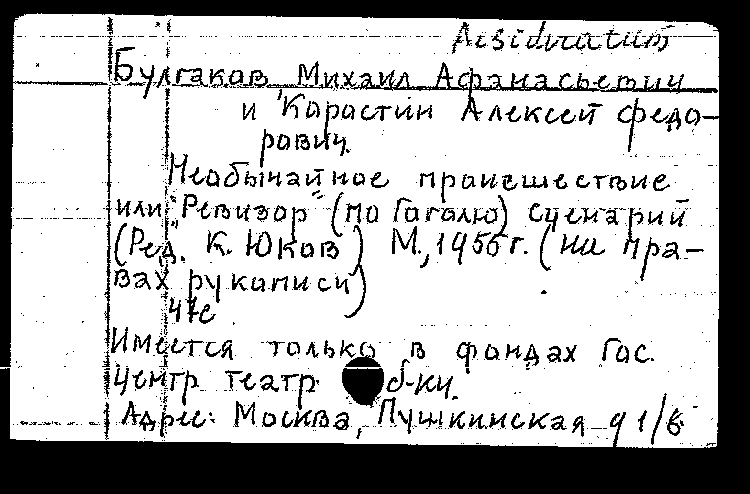 Desideratum
Булгаков Михаил Афанасьевич
и Коростин Алексей Федо-
рович.
Необычайное происшествие
или "Ревизор" (по Гоголю) сценарий
(Ред. К. Юков) М., 1956 г. (на пра-
вах рукописи)
47с
Имеется только в фондах Гос.
Центр театр б-ки.
Адрес: Москва, Пушкинская д 1/6